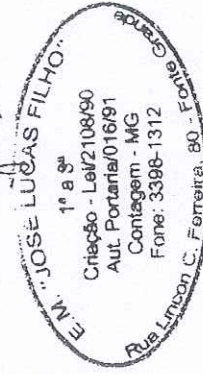 E.M. "JOSÉ LUCAS FILHO"
1ª a 8ª
Criação - Lei/2108/90
Aut. Portaria/016/91
Contagem - MG
Fone: 3398-1312
Rua Lincon C. Ferreira, 80 - Fonte Grande